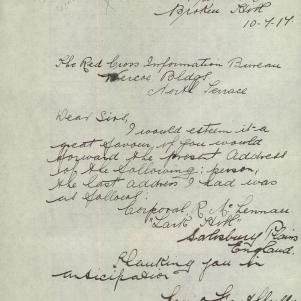 Broken Hill
10-7-17
The Red Cross Information Bureau
Verco Bldgs
North Terrace
Dear Sirs,
I would esteem it a
great favour if you would
forward the present Address
of the following: person,
the last address I had was
as follows:
Corporal R. McLennan
"Lark Hill"
Salisbury Plains
England.
Thanking you in
anticipation